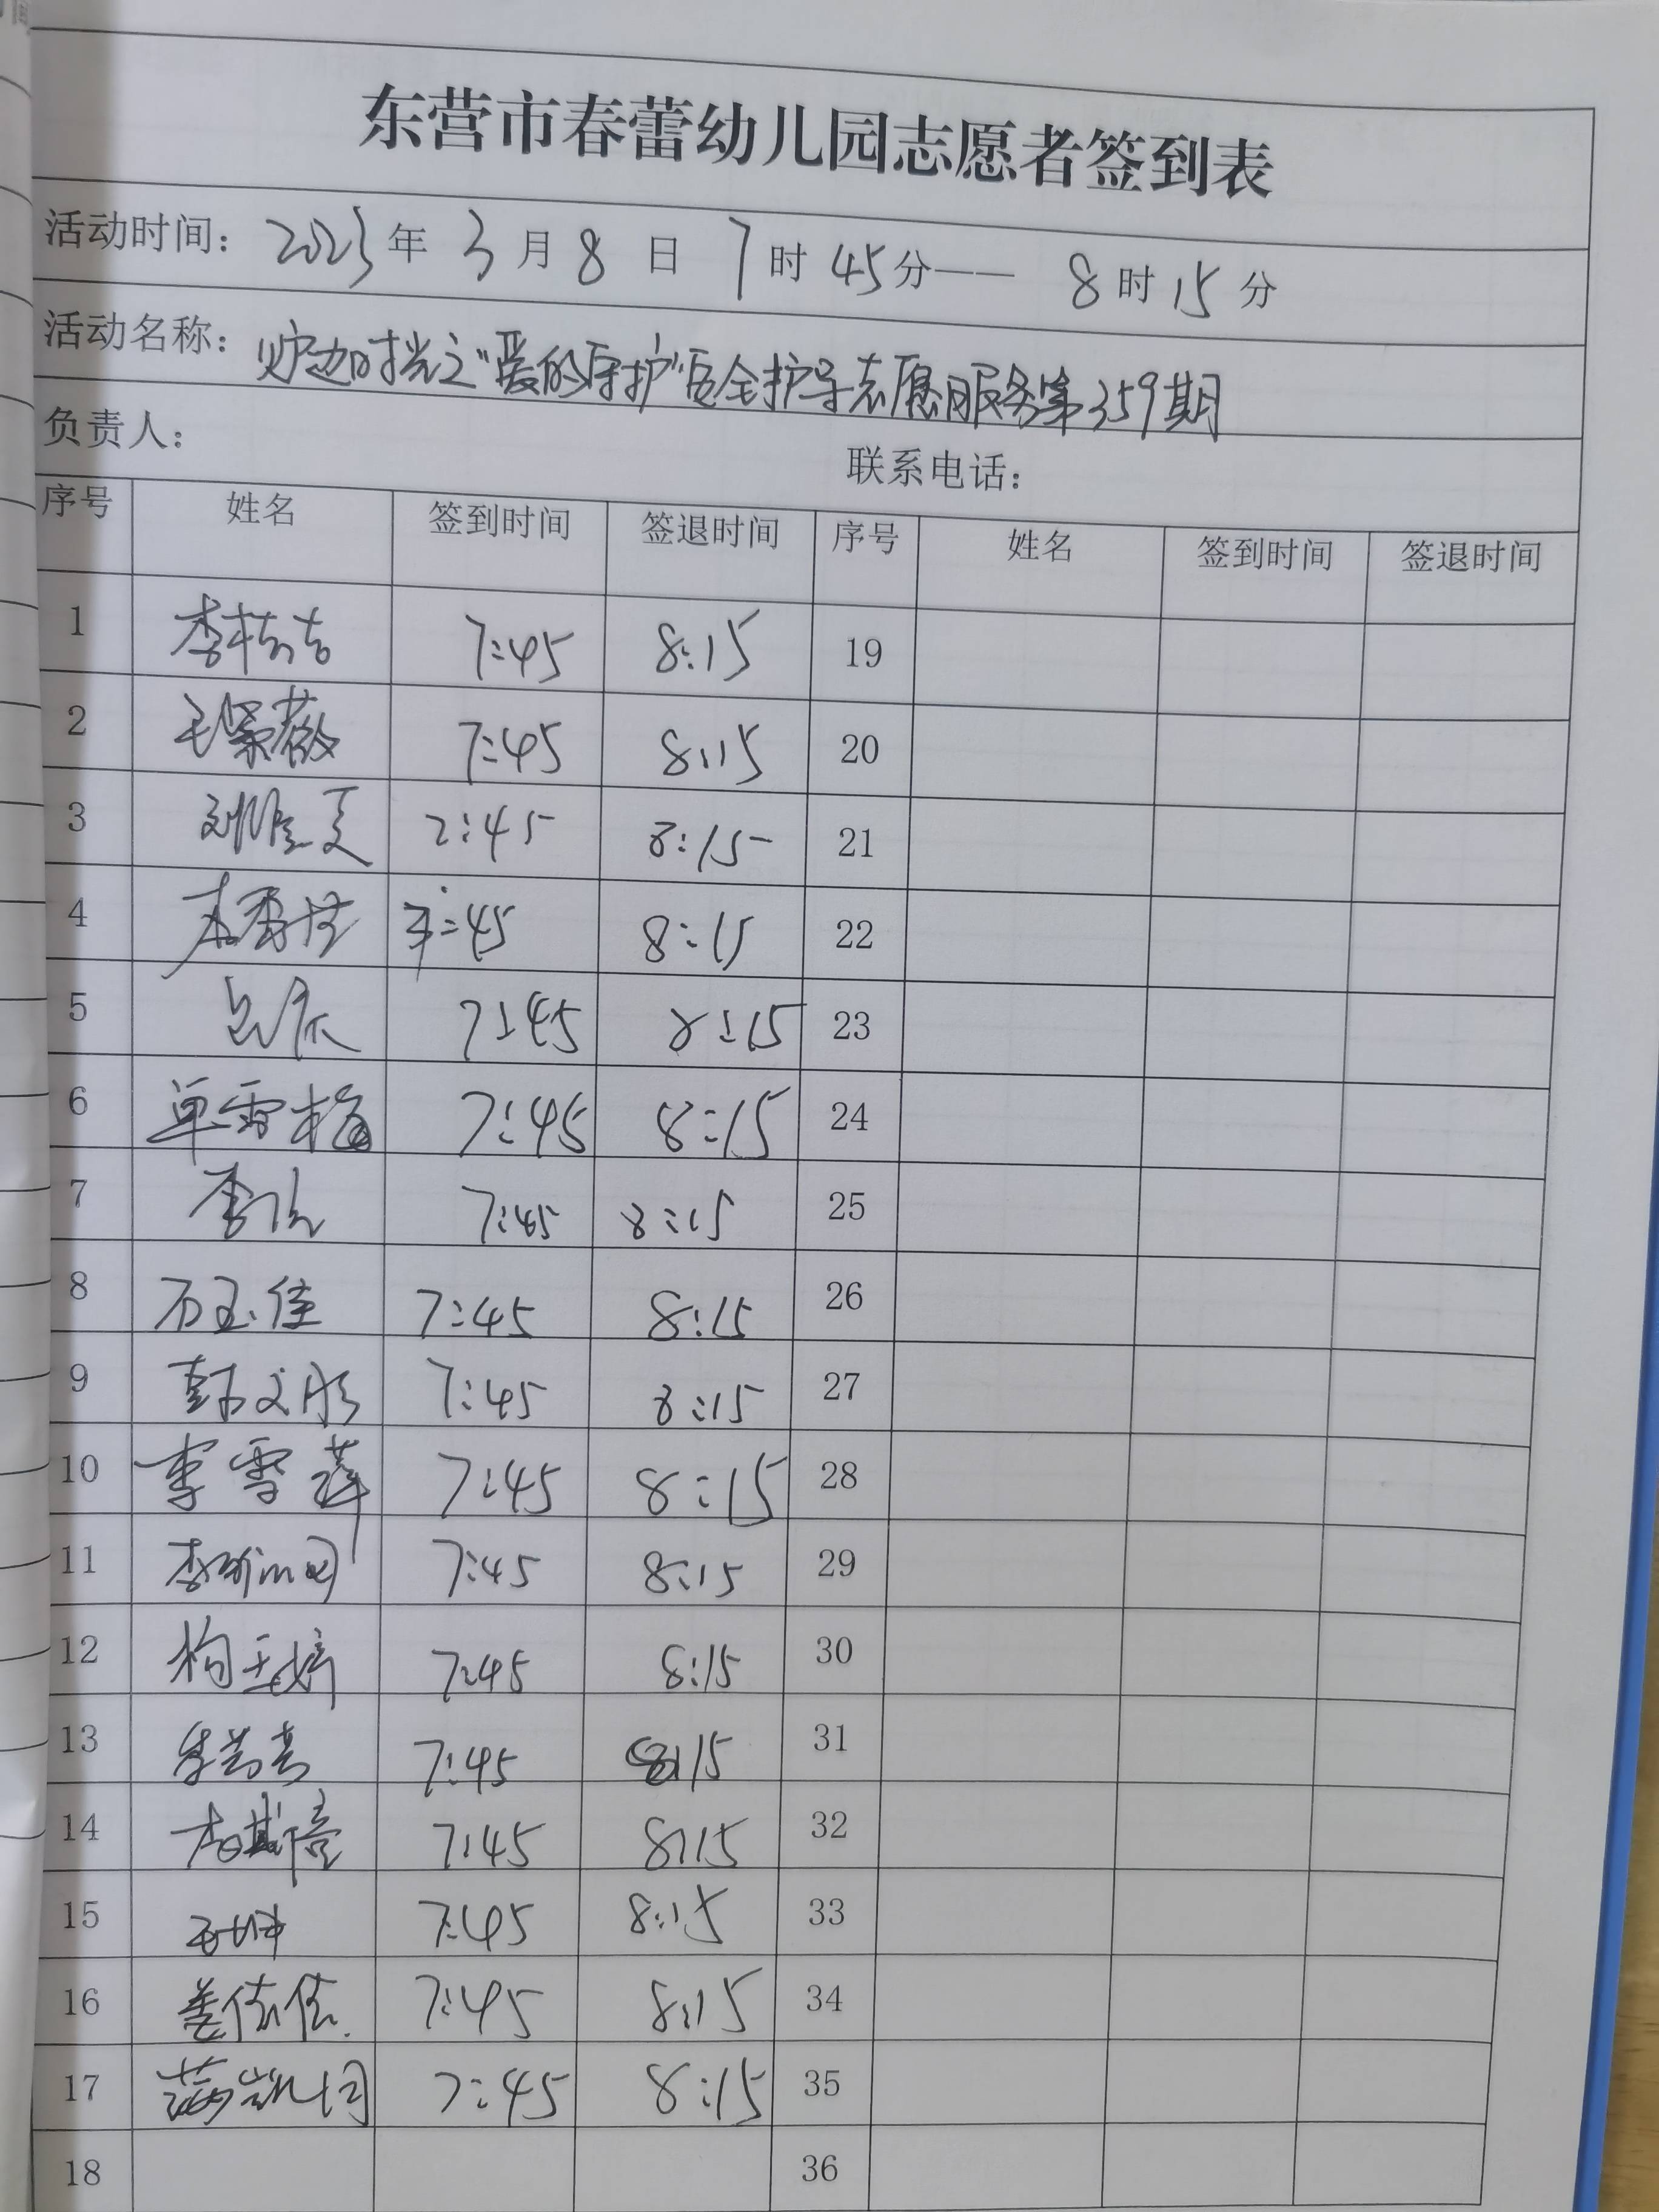 东营市春蕾幼儿园志愿者签到表
活动时间：2023年 3月8日 7时45分—— 8时15分
活动名称：炉边时光之“爱的守护”安全护导志愿服务第359期
负责人： 联系电话：
序号 姓名 签到时间 签退时间 序号 姓名 签到时间 签退时间
1 7:45 8:15 19
2 7:45 8:15 20
3 7:45 8:15 21
4 7:45 8:15 22
5 7:45 8:15 23
6 单雪梅 7:45 8:15 24
7 7:45 8:15 25
8 石玉佳 7:45 8:15 26
9 韩文彤 7:45 8:15 27
10 李雪莲 7:45 8:15 28
11 7:45 8:15 29
12 7:45 8:15 30
13 7:45 8:15 31
14 7:45 8:15 32
15 王坤 7:45 8:15 33
16 姜依依 7:45 8:15 34
17 7:45 8:15 35
18 36